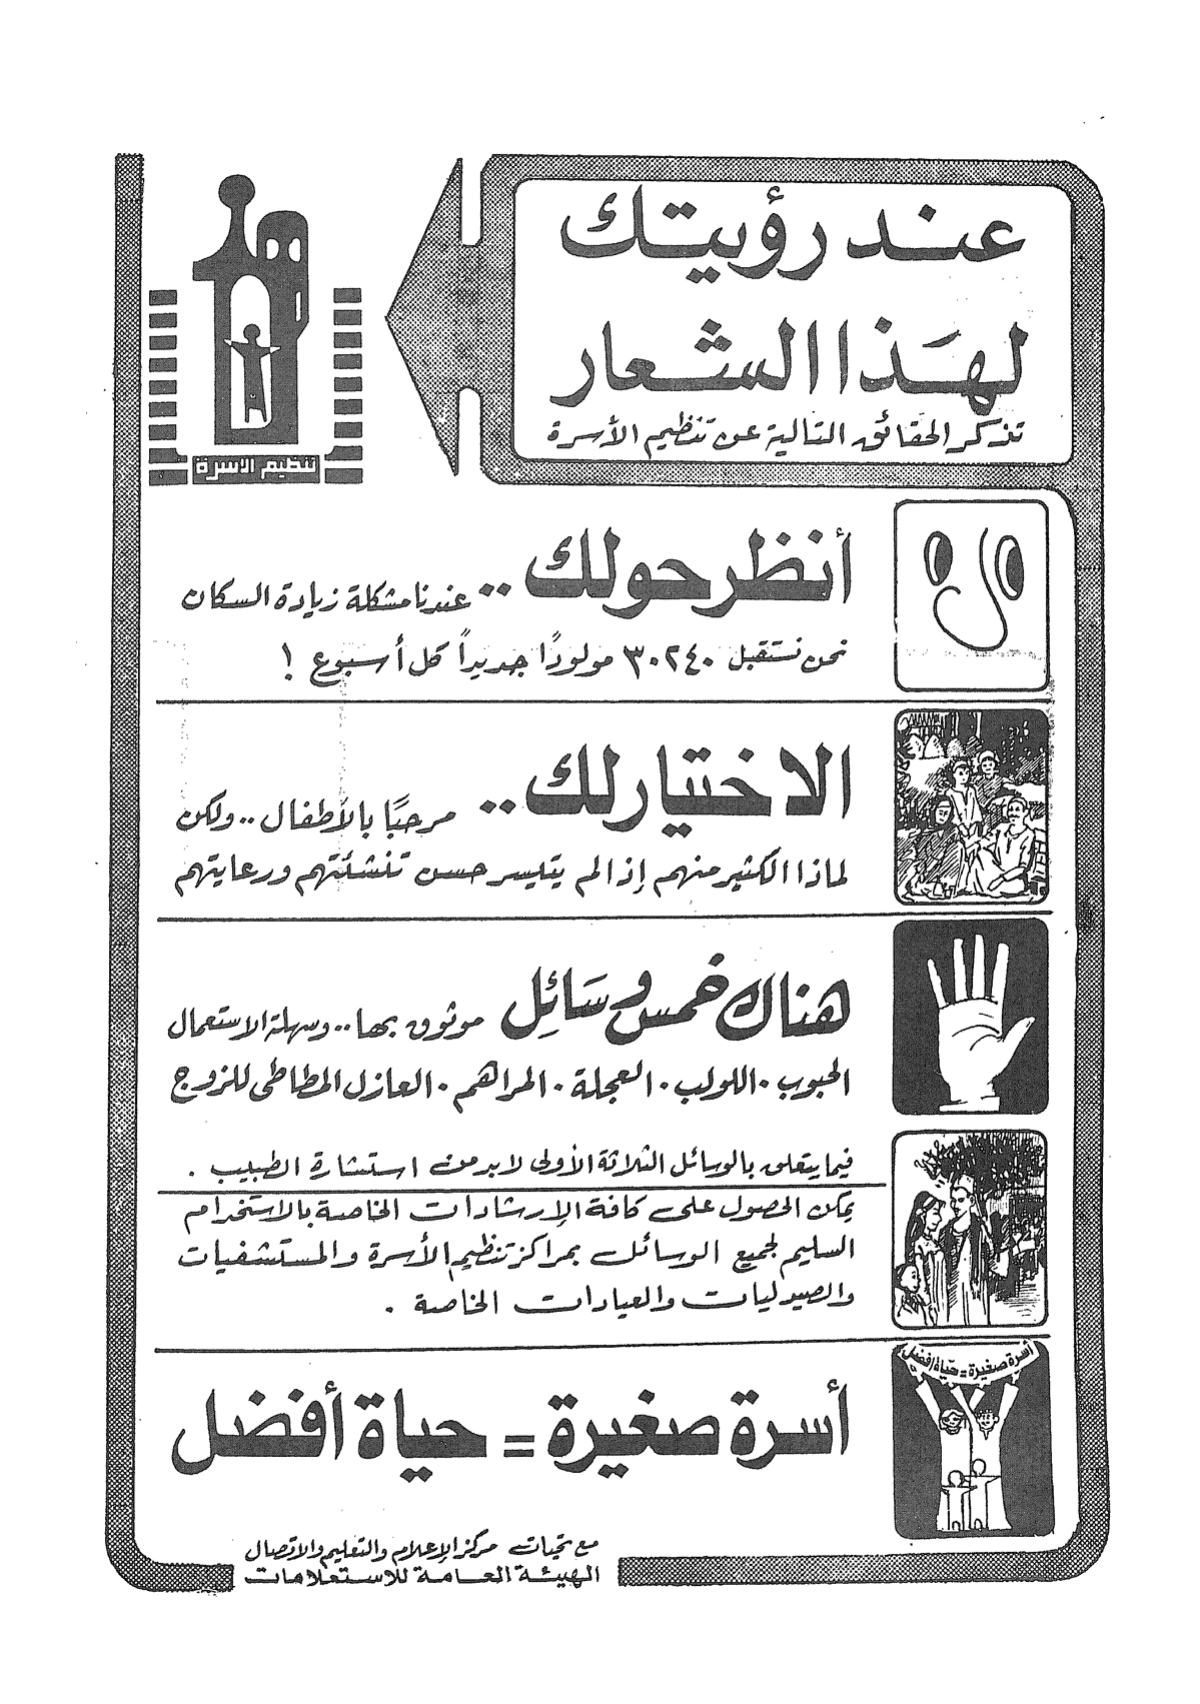 عند رؤيتك
لهذا الشعار
تذكر الحقائق التالية عن تنظيم الأسرة
تنظيم الاسرة
أنظر حولك .. عندنا مشكلة زيادة السكان
نحن نستقبل ٣٠٢٤٠ مولودًا جديدًا كل أسبوع !
الاختيار لك .. مرحبًا بالأطفال .. ولكن
لماذا الكثير منهم إذا لم يتيسر حسن تنشئتهم ورعايتهم
هناك خمس وسائل موثوق بها .. وسهلة الاستعمال
الحبوب • اللولب • العجلة • المراهم • العازل المطاطى للزوج
فيما يتعلق بالوسائل الثلاثة الأولى لابد من استشارة الطبيب .
يمكن الحصول على كافة الإرشادات الخاصة بالاستخدام
السليم لجميع الوسائل بمراكز تنظيم الأسرة والمستشفيات
والصيدليات والعيادات الخاصة .
أسرة صغيرة = حياة أفضل
أسرة صغيرة = حياة أفضل
مع تحيات مركز الإعلام والتعليم والاتصال
الهيئة العامة للاستعلامات